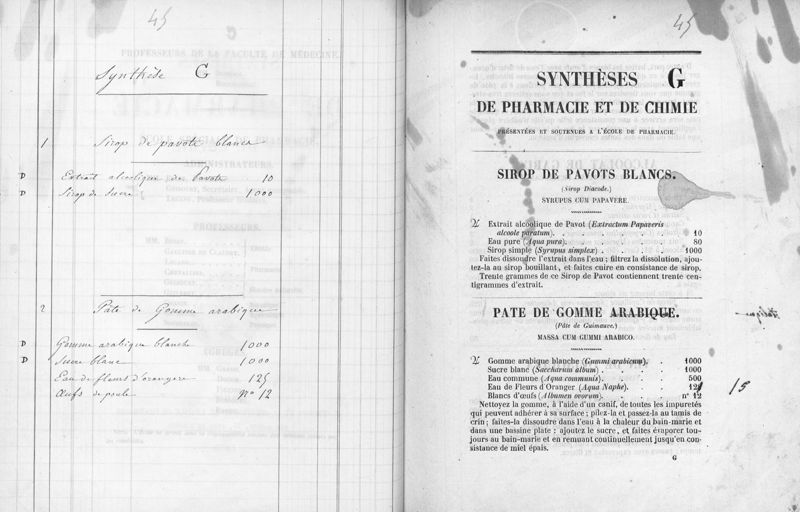 45
Synthèse G
1 Sirop de pavots blancs
D Extrait alcoolique de Pavots 10
D Sirop de sucre 1000
2 Pâte de Gomme arabique
D Gomme arabique blanche 1000
D Sucre blanc 1000
Eau de fleurs d'oranger 125
Œufs de poule nº 12
45
SYNTHÈSES G
DE PHARMACIE ET DE CHIMIE
PRÉSENTÉES ET SOUTENUES A L'ÉCOLE DE PHARMACIE.
SIROP DE PAVOTS BLANCS.
(Sirop Diacode.)
SYRUPUS CUM PAPAVERE.
♃ Extrait alcoolique de Pavot (Extractum Papaveris
alcoole paratum). . . . . . . 10
Eau pure (Aqua pura). . . . . . . 80
Sirop simple (Syrupus simplex) . . . . 1000
Faites dissoudre l'extrait dans l'eau ; filtrez la dissolution, ajou-
tez-la au sirop bouillant, et faites cuire en consistance de sirop.
Trente grammes de ce Sirop de Pavot contiennent trente cen-
tigrammes d'extrait.
PATE DE GOMME ARABIQUE.
(Pâte de Guimauve.)
MASSA CUM GUMMI ARABICO.
♃ Gomme arabique blanche (Gummi arabicum). . 1000
Sucre blanc (Saccharum album) . . . . 1000
Eau commune (Aqua communis). . . . 500
Eau de Fleurs d'Oranger (Aqua Naphe). . . 125 15
Blancs d'œufs (Albumen ovorum). . . . nº 12
Nettoyez la gomme, à l'aide d'un canif, de toutes les impuretés
qui peuvent adhérer à sa surface ; pilez-la et passez-la au tamis de
crin ; faites-la dissoudre dans l'eau à la chaleur du bain-marie et
dans une bassine plate ; ajoutez le sucre, et faites évaporer tou-
jours au bain-marie et en remuant continuellement jusqu'en con-
sistance de miel épais.
G